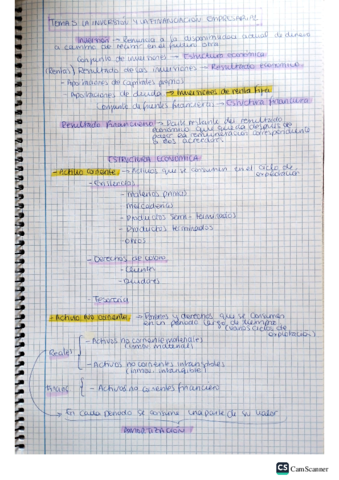 TEMA 5 LA INVERSIÓN Y LA FINANCIACIÓN EMPRESARIAL
Inversión → Renuncia a la disponibilidad actual de dinero
a cambio de tener en el futuro otra
Conjunto de inversiones → Estructura económica
(Rentas) Resultado de las inversiones → Resultado económico
- Aportaciones de capitales propios
- Aportaciones de deuda → Inversiones de renta fija
Conjunto de fuentes financieras → Estructura financiera
Resultado financiero → Parte restante del resultado
económico que queda después de
pagar la remuneración correspondiente
a los acreedores
ESTRUCTURA ECONÓMICA
- Activo corriente → Activos que se consumen en el ciclo de
explotación
- Existencias
- Materias primas
- Mercaderías
- Productos semi-terminados
- Productos terminados
- Otros
- Derechos de cobro
- Clientes
- Deudores
- Tesorería
- Activo no corriente → Bienes y derechos que se consumen
en un periodo largo de tiempo
(varios ciclos de
explotación)
Reales
- Activos no corrientes materiales
(inmov. materiales)
- Activos no corrientes intangibles
(inmov. intangible)
- Activos no corrientes financiero
→ En cada periodo se consume una parte de su valor
AMORTIZACIÓN
CS CamScanner